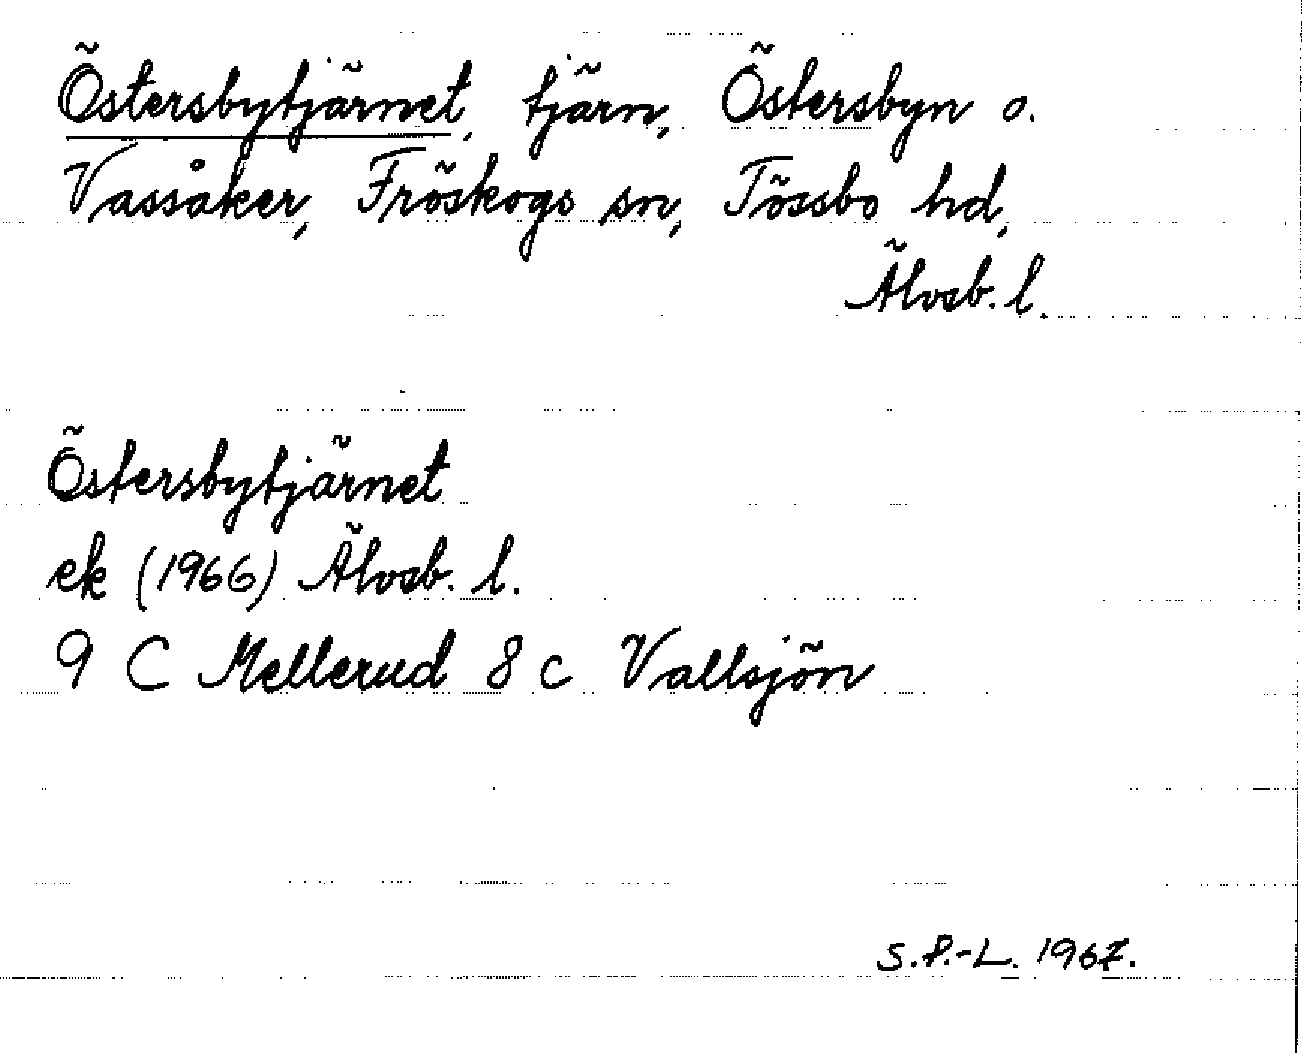 Östersbytjärnet, tjärn, Östersbyn o.
Vassåker, Fröskogs sn, Tössbo hd,
Älvsb. l.
Östersbytjärnet
ek (1966) Älvsb. l.
9 C Mellerud 8 c Vallsjön
S.P.-L. 1967.